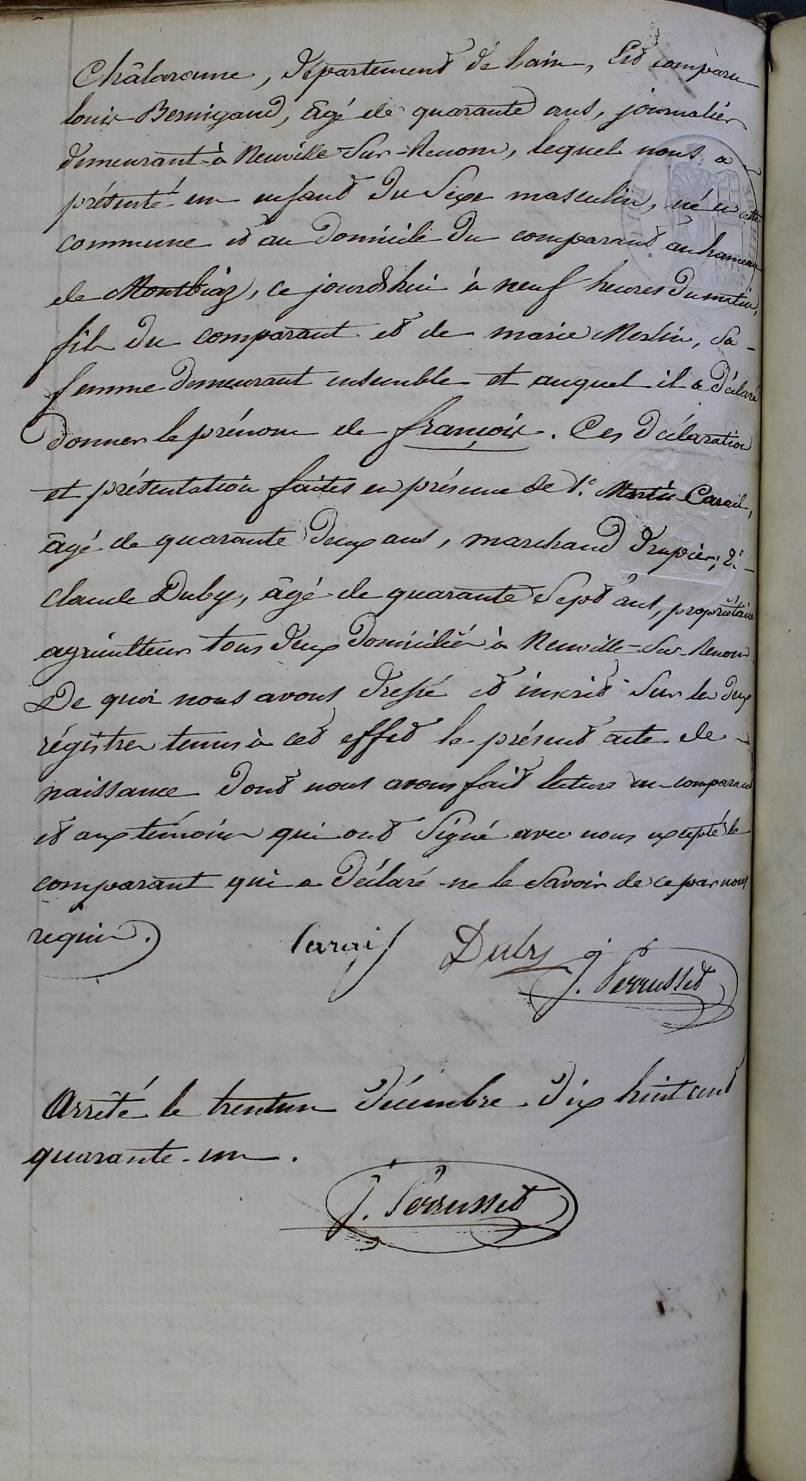 Châlaronne, département de l'ain, Est comparu
louis Bernigaud, âgé de quarante ans, journalier
demeurant à Neuville-Sur-Renom, lequel nous a
présenté un enfant du Sexe masculin, né en cette
commune et au Domicile du comparant au hameau
de Montbiaz, ce jourd'hui à neuf heures du matin,
fils du comparant et de marie Merlin, Sa
femme demeurant ensemble et auquel il a déclaré
donner le prénom de françois. Ces déclaration
et présentation faites en présence de 1.° Martin Carail,
âgé de quarante deux ans, marchand drapier; 2.°
Claude Duby, âgé de quarante Sept ans, propriétaire
agriculteur tous deux domiciliés à Neuville-Sur-Renom.
De quoi nous avons dressé et inscrit Sur les deux
régistres tenus à cet effet le présent acte de
naissance dont nous avons fait lecture au comparant
et aux témoins qui ont Signé avec nous excepté le
comparant qui a déclaré ne le Savoir de ce par nous
requis.
Carail Duby J. Perrusset
Arrêté le trentun décembre dix huit cent
quarante-un.
J. Perrusset